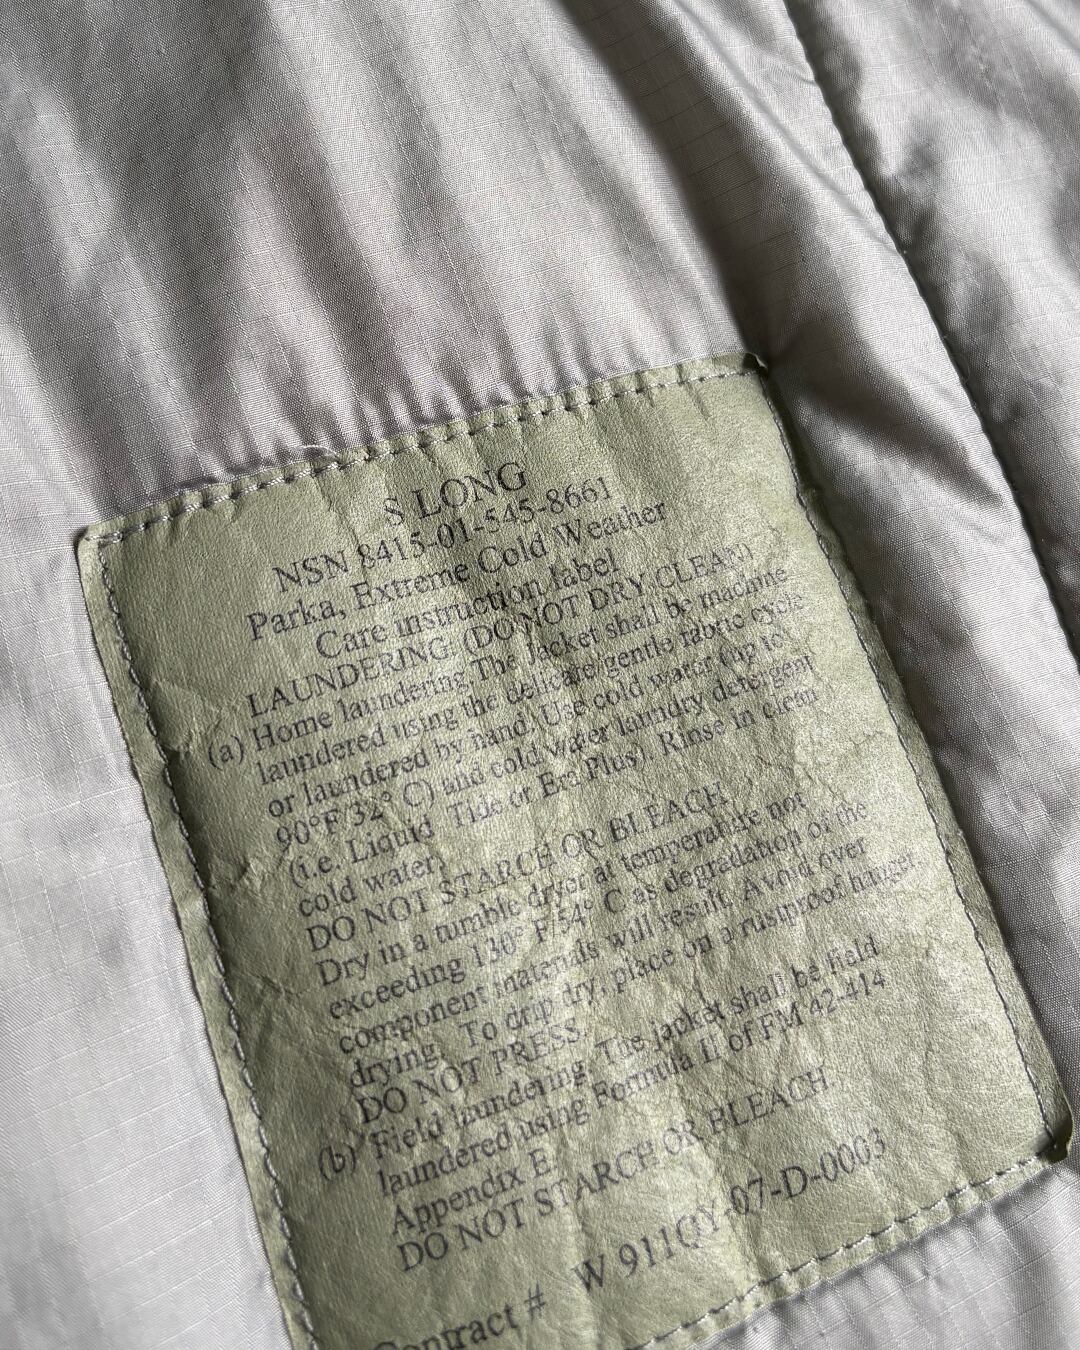 S LONG
NSN 8415-01-545-8661
Parka, Extreme Cold Weather
Care instruction label
LAUNDERING (DO NOT DRY CLEAN)
(a) Home laundering The Jacket shall be machine
laundered using the delicate/gentle fabric cycle
or laundered by hand. Use cold water (up to
90°F/32° C) and cold water laundry detergent
(i.e. Liquid Tide or Era Plus). Rinse in clean
cold water.
DO NOT STARCH OR BLEACH
Dry in a tumble dryer at temperature not
exceeding 130° F/54° C as degradation of the
component materials will result. Avoid over
drying. To drip dry, place on a rustproof hanger.
DO NOT PRESS.
(b) Field laundering. The jacket shall be field
laundered using Formula II of FM 42-414
Appendix E.
DO NOT STARCH OR BLEACH.
Contract # W 911QY-07-D-0003